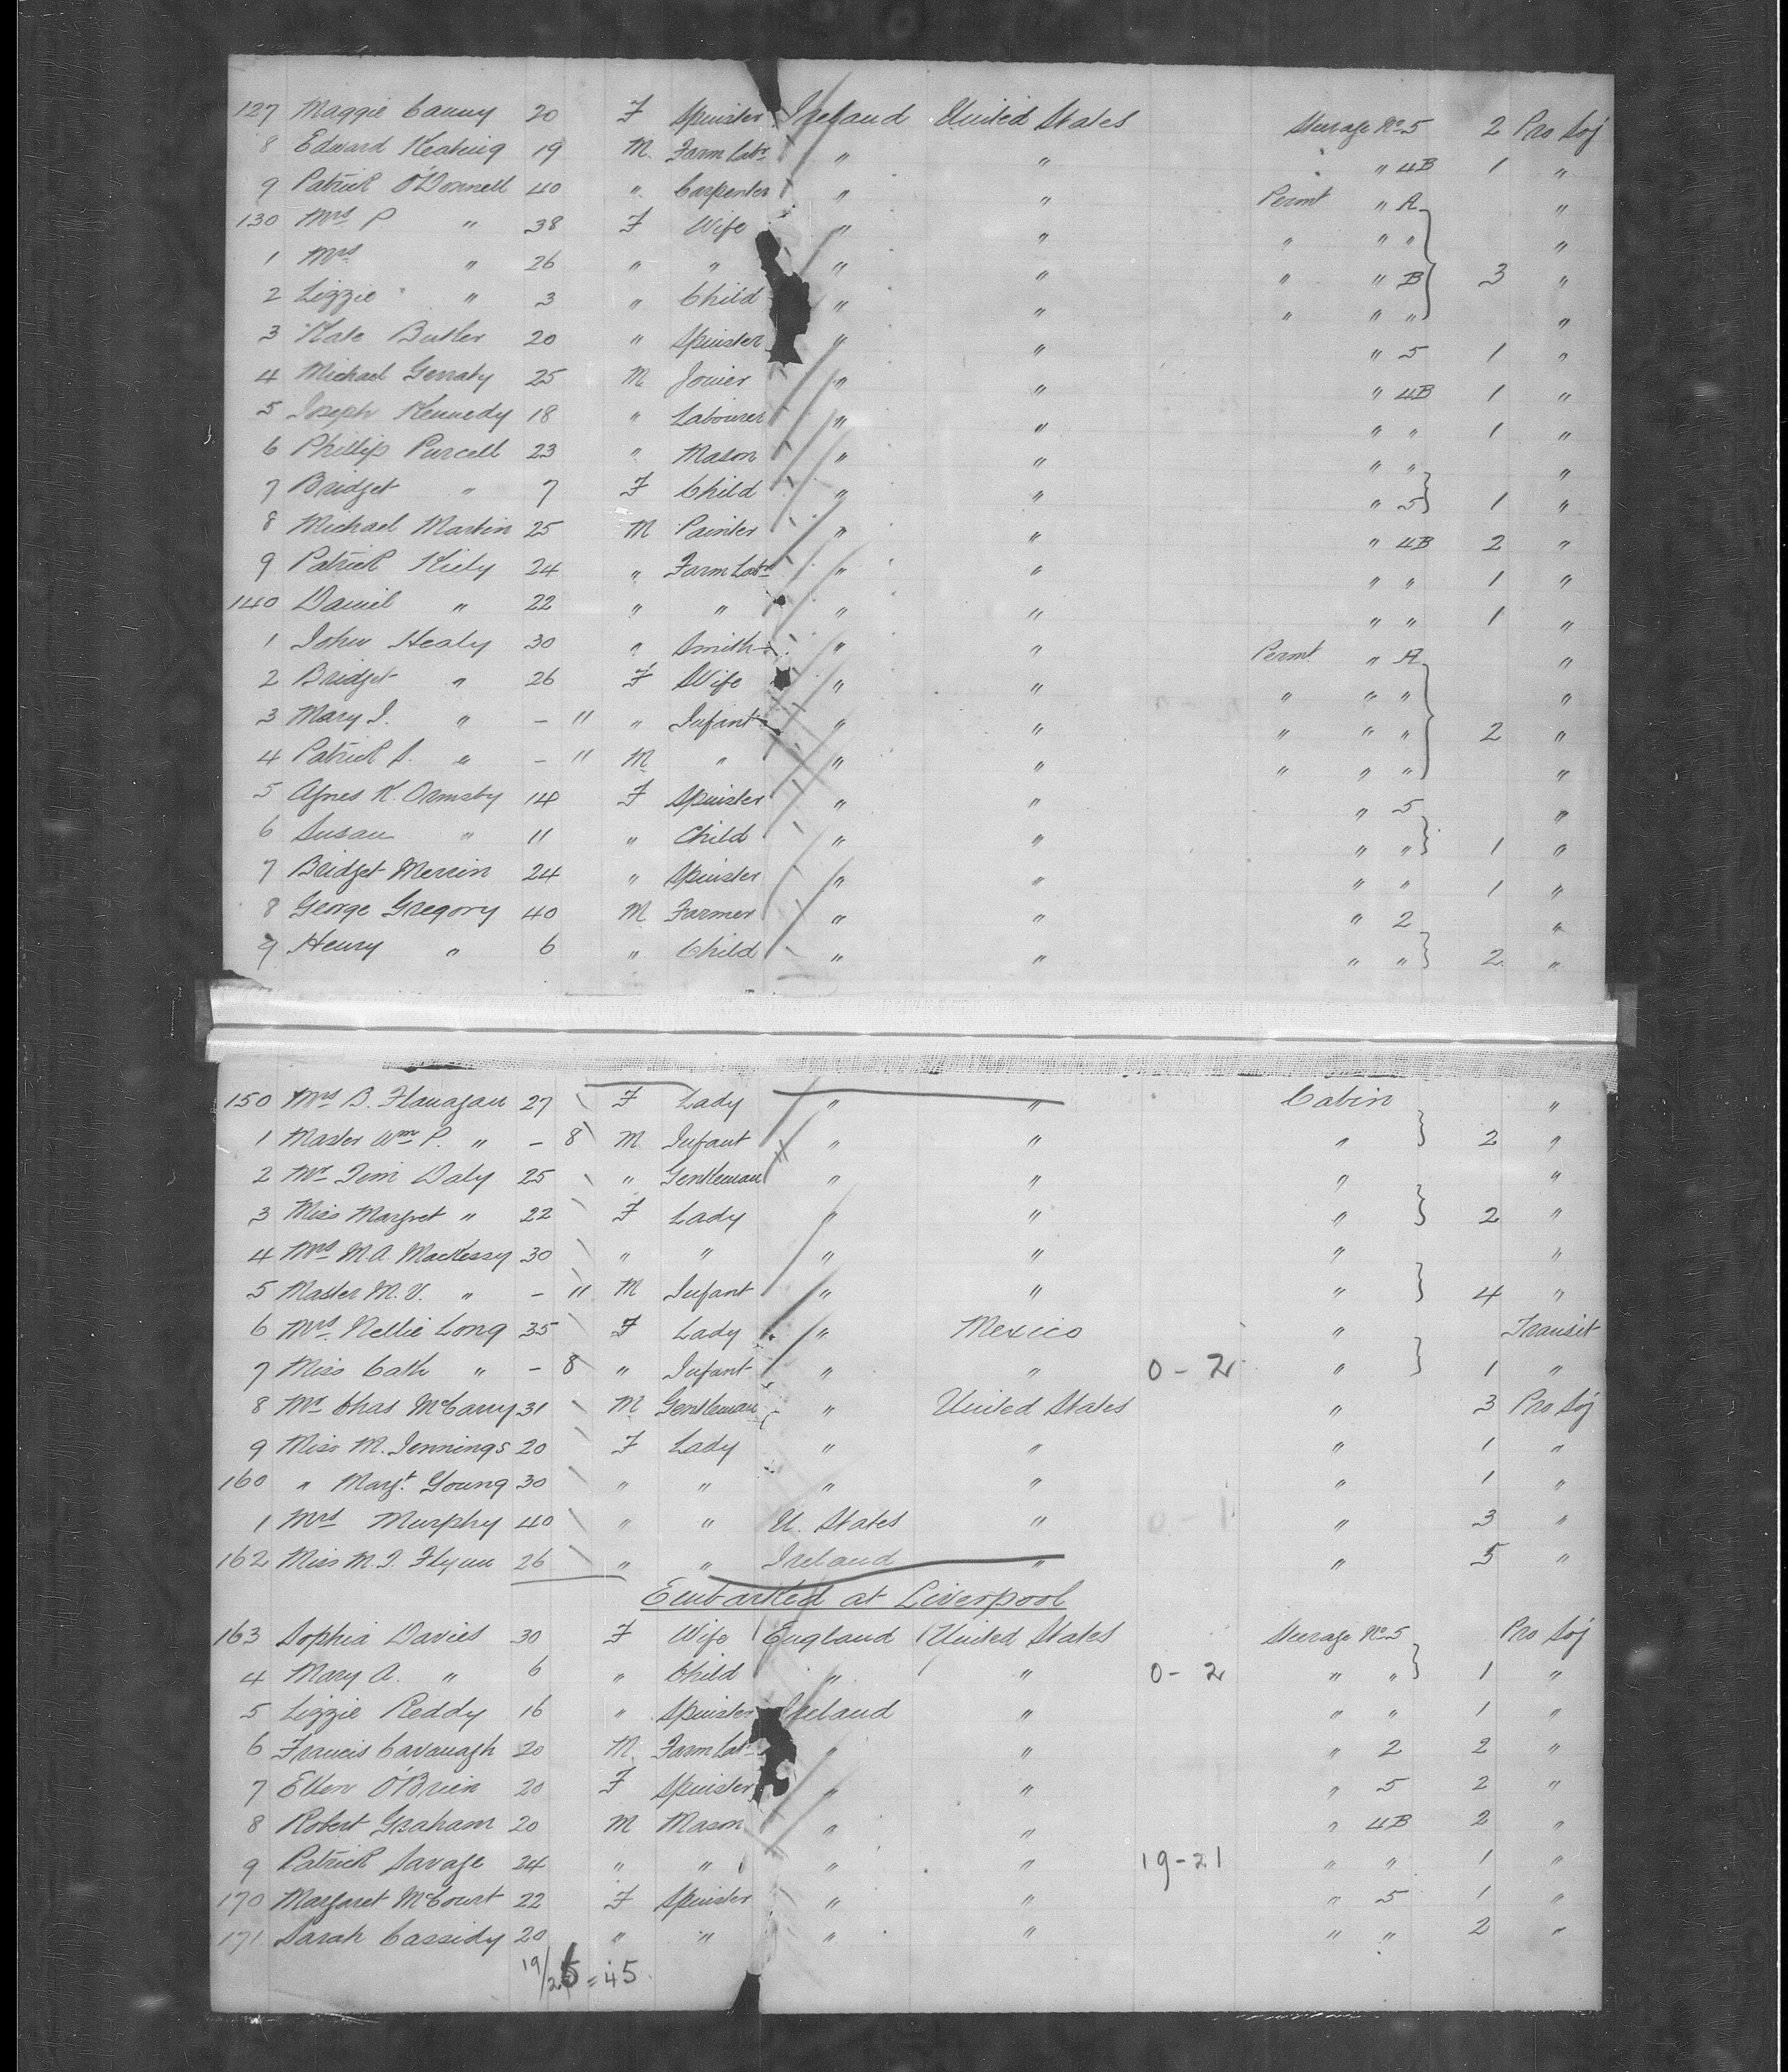 127 Maggie Canny 20 F Spinster Ireland United States Steerage No 5 2 Pro Soj
8 Edward Keating 19 M. Farm Labr " " " 4B 1 "
9 Patrick O'Donnell 40 " Carpenter " " Permt " A "
130 Mrs P. " 38 F Wife " " " " " "
1 Mrs " 26 " " " " " " B 3 "
2 Lizzie " 3 " Child " " " " " "
3 Kate Butler 20 " Spinster " " " 5 1 "
4 Michael Gerraty 25 M Joiner " " " 4B 1 "
5 Joseph Kennedy 18 " Labourer " " " " 1 "
6 Phillip Purcell 23 " Mason " " " " "
7 Bridget " 7 F Child " " " 5 1 "
8 Michael Martin 25 M Painter " " " 4B 2 "
9 Patrick Kiely 24 " Farm Labr " " " " 1 "
140 Daniel " 22 " " " " " " 1 "
1 John Healy 30 " Smith " " Permt " A "
2 Bridget " 26 F Wife " " " " " "
3 Mary J. " - 11 " Infant " " " " " 2 "
4 Patrick S. " - 11 M " " " " " " "
5 Agnes K. Ormsby 14 F Spinster " " " 5 "
6 Susan " 11 " Child " " " " 1 "
7 Bridget Merrin 24 " Spinster " " " " 1 "
8 George Gregory 40 M Farmer " " " 2 "
9 Henry " 6 " Child " " " " 2 "
150 Mrs B. Flanagan 27 F Lady " " Cabin "
1 Master Wm P. " - 8 M Infant " " " 2 "
2 Mr Tim Daly 25 " Gentleman " " " "
3 Miss Margret " 22 F Lady " " " 2 "
4 Mrs M.A. Mackessy 30 " " " " " "
5 Master M.V. " - 11 M Infant " " " 4 "
6 Mrs Nellie Long 35 F Lady " Mexico " Transit
7 Miss Cath " - 8 " Infant " " 0 - 2 " 1 "
8 Mr Chas McCarry 31 M Gentleman " United States " 3 Pro Soj
9 Miss M. Jennings 20 F Lady " " " 1 "
160 " Margt. Young 30 " " " " " 1 "
1 Mrs Murphy 40 " " U. States " 0 - 1 " 3 "
162 Miss M.J. Flynn 26 " " Ireland " " 5 "
Embarked at Liverpool
163 Sophia Davies 30 F Wife England United States Steerage No 5 Pro Soj
4 Mary A. " 6 " Child " " 0 - 2 " " 1 "
5 Lizzie Reddy 16 " Spinster Ireland " " " 1 "
6 Francis Cavanagh 20 M Farm Labr " " " 2 2 "
7 Ellen O'Brien 20 F Spinster " " " 5 2 "
8 Robert Graham 20 M Mason " " " 4B 2 "
9 Patrick Savage 24 " " " " 19-21 " " 1 "
170 Margaret McCourt 22 F Spinster " " " 5 1 "
171 Sarah Cassidy 20 " " " " " " 2 "
19/26 = 45